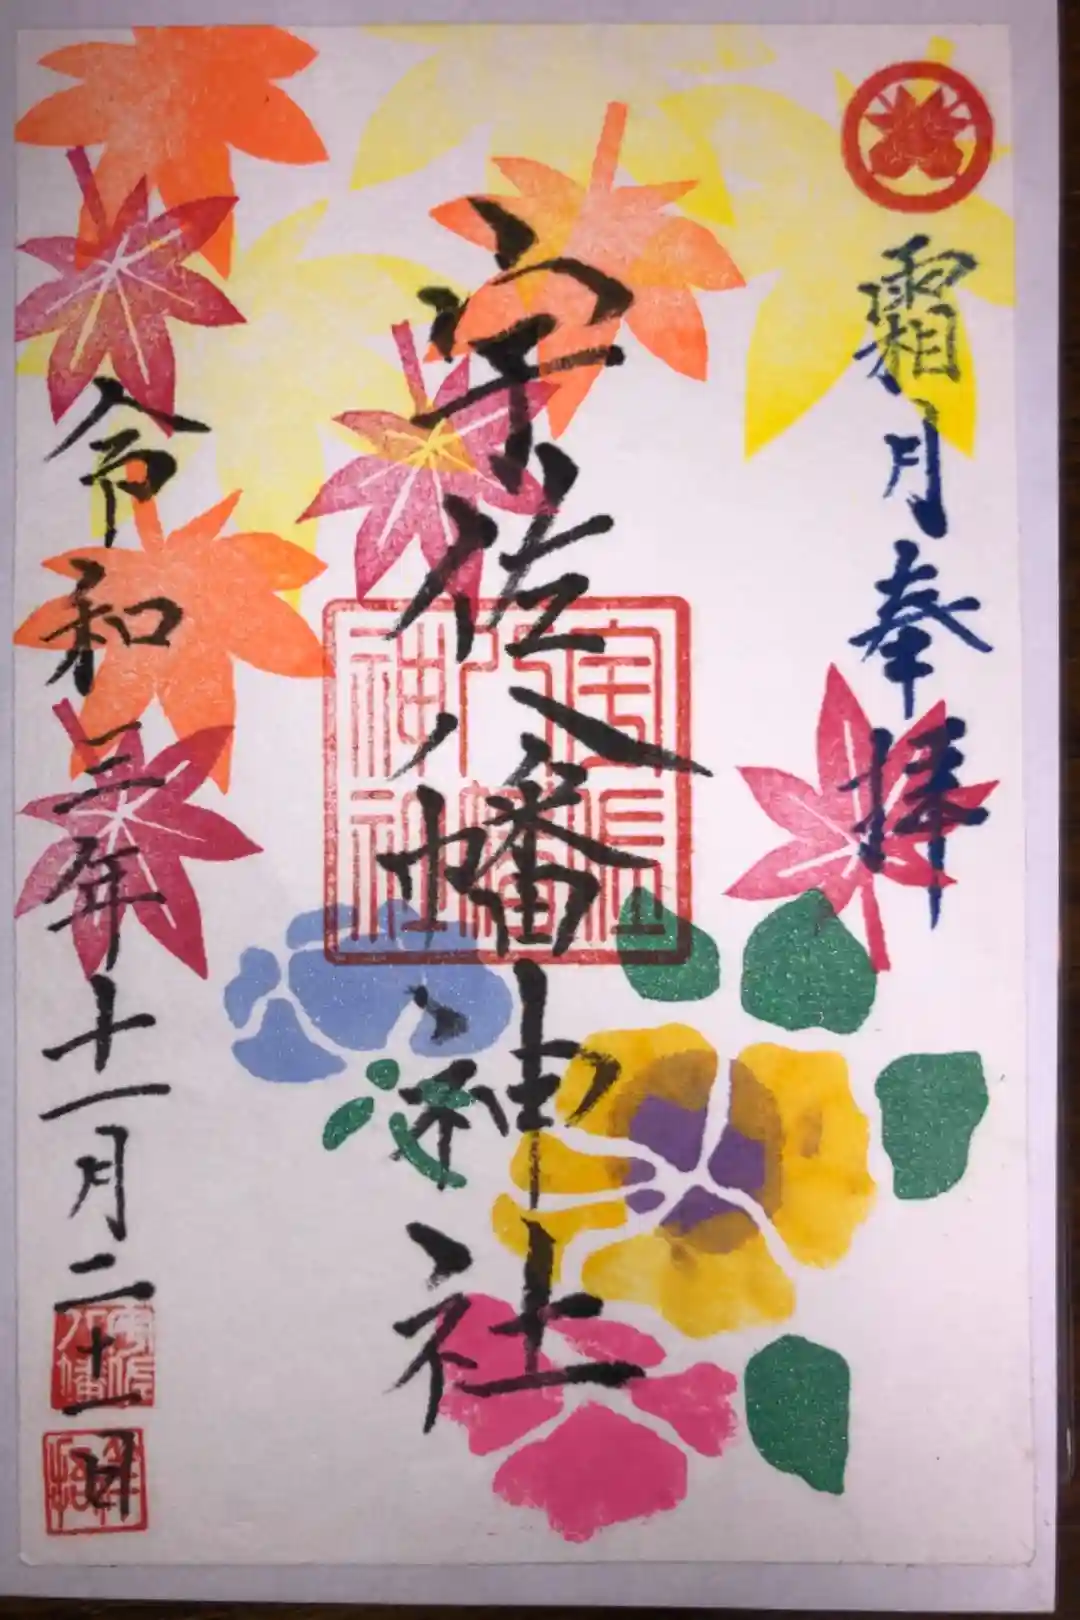 霜月奉拝
宇佐八幡神社
宇佐八幡神社
令和三年十一月二十一日
宇佐八幡